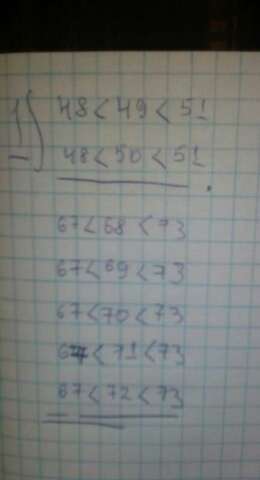 1) 48<49<51
48<50<51.
67<68<73
67<69<73
67<70<73
67<71<73
67<72<73